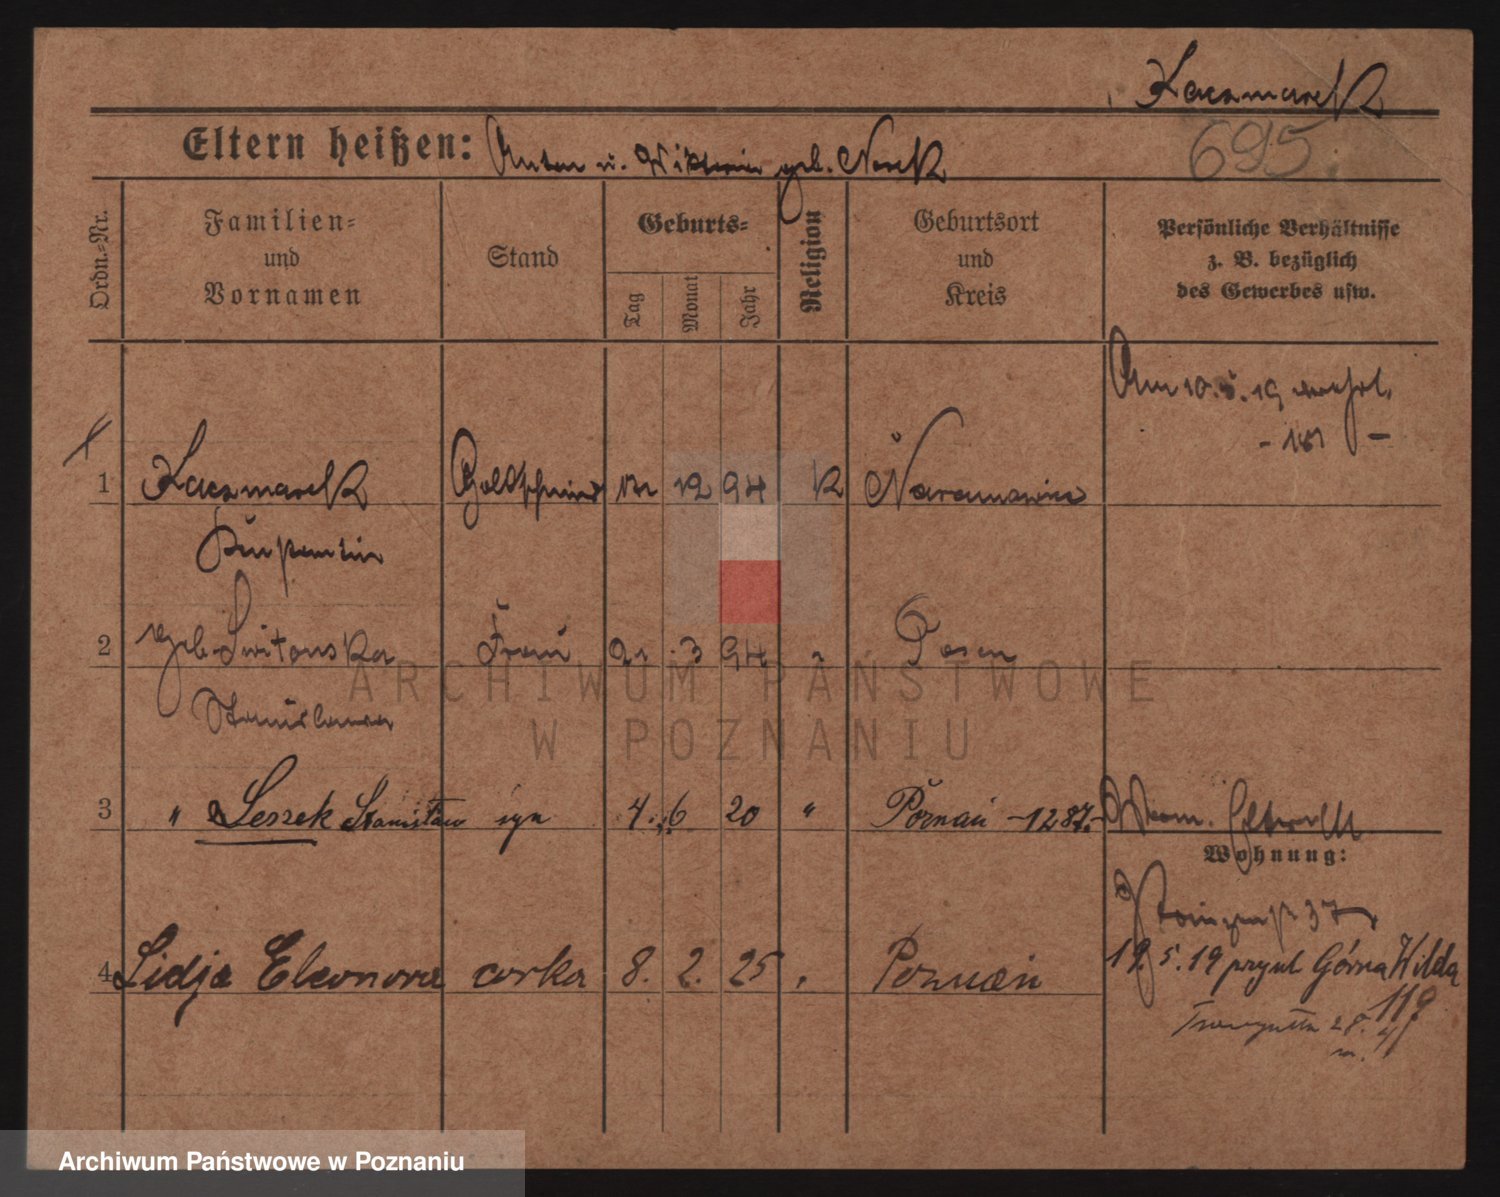 Kaczmarek
695.
Eltern heißen: Anton u. Wiktoria geb. Norek
Ordn.=Nr.
Familien=
und
Vornamen
Stand
Geburts=
Tag
Monat
Jahr
Religion
Geburtsort
und
Kreis
Persönliche Verhältnisse
z. B. bezüglich
des Gewerbes usw.
Am 10. 5. 19
1 Kaczmarek Goldschmied 12 94 K
2 geb. Switonska Frau 21 3 94 " Posen
Stanislawa
3 " Leszek Stanisław syn 4. 6 20 " Poznań -1287.-
Wohnung:
37
4 Lidja Eleonora corka 8. 2. 25 " Poznań
19. 5. 19 przyb. Górna Wilda
119
Traugutta 28.
m.
ARCHIWUM PAŃSTWOWE
W POZNANIU
Archiwum Państwowe w Poznaniu